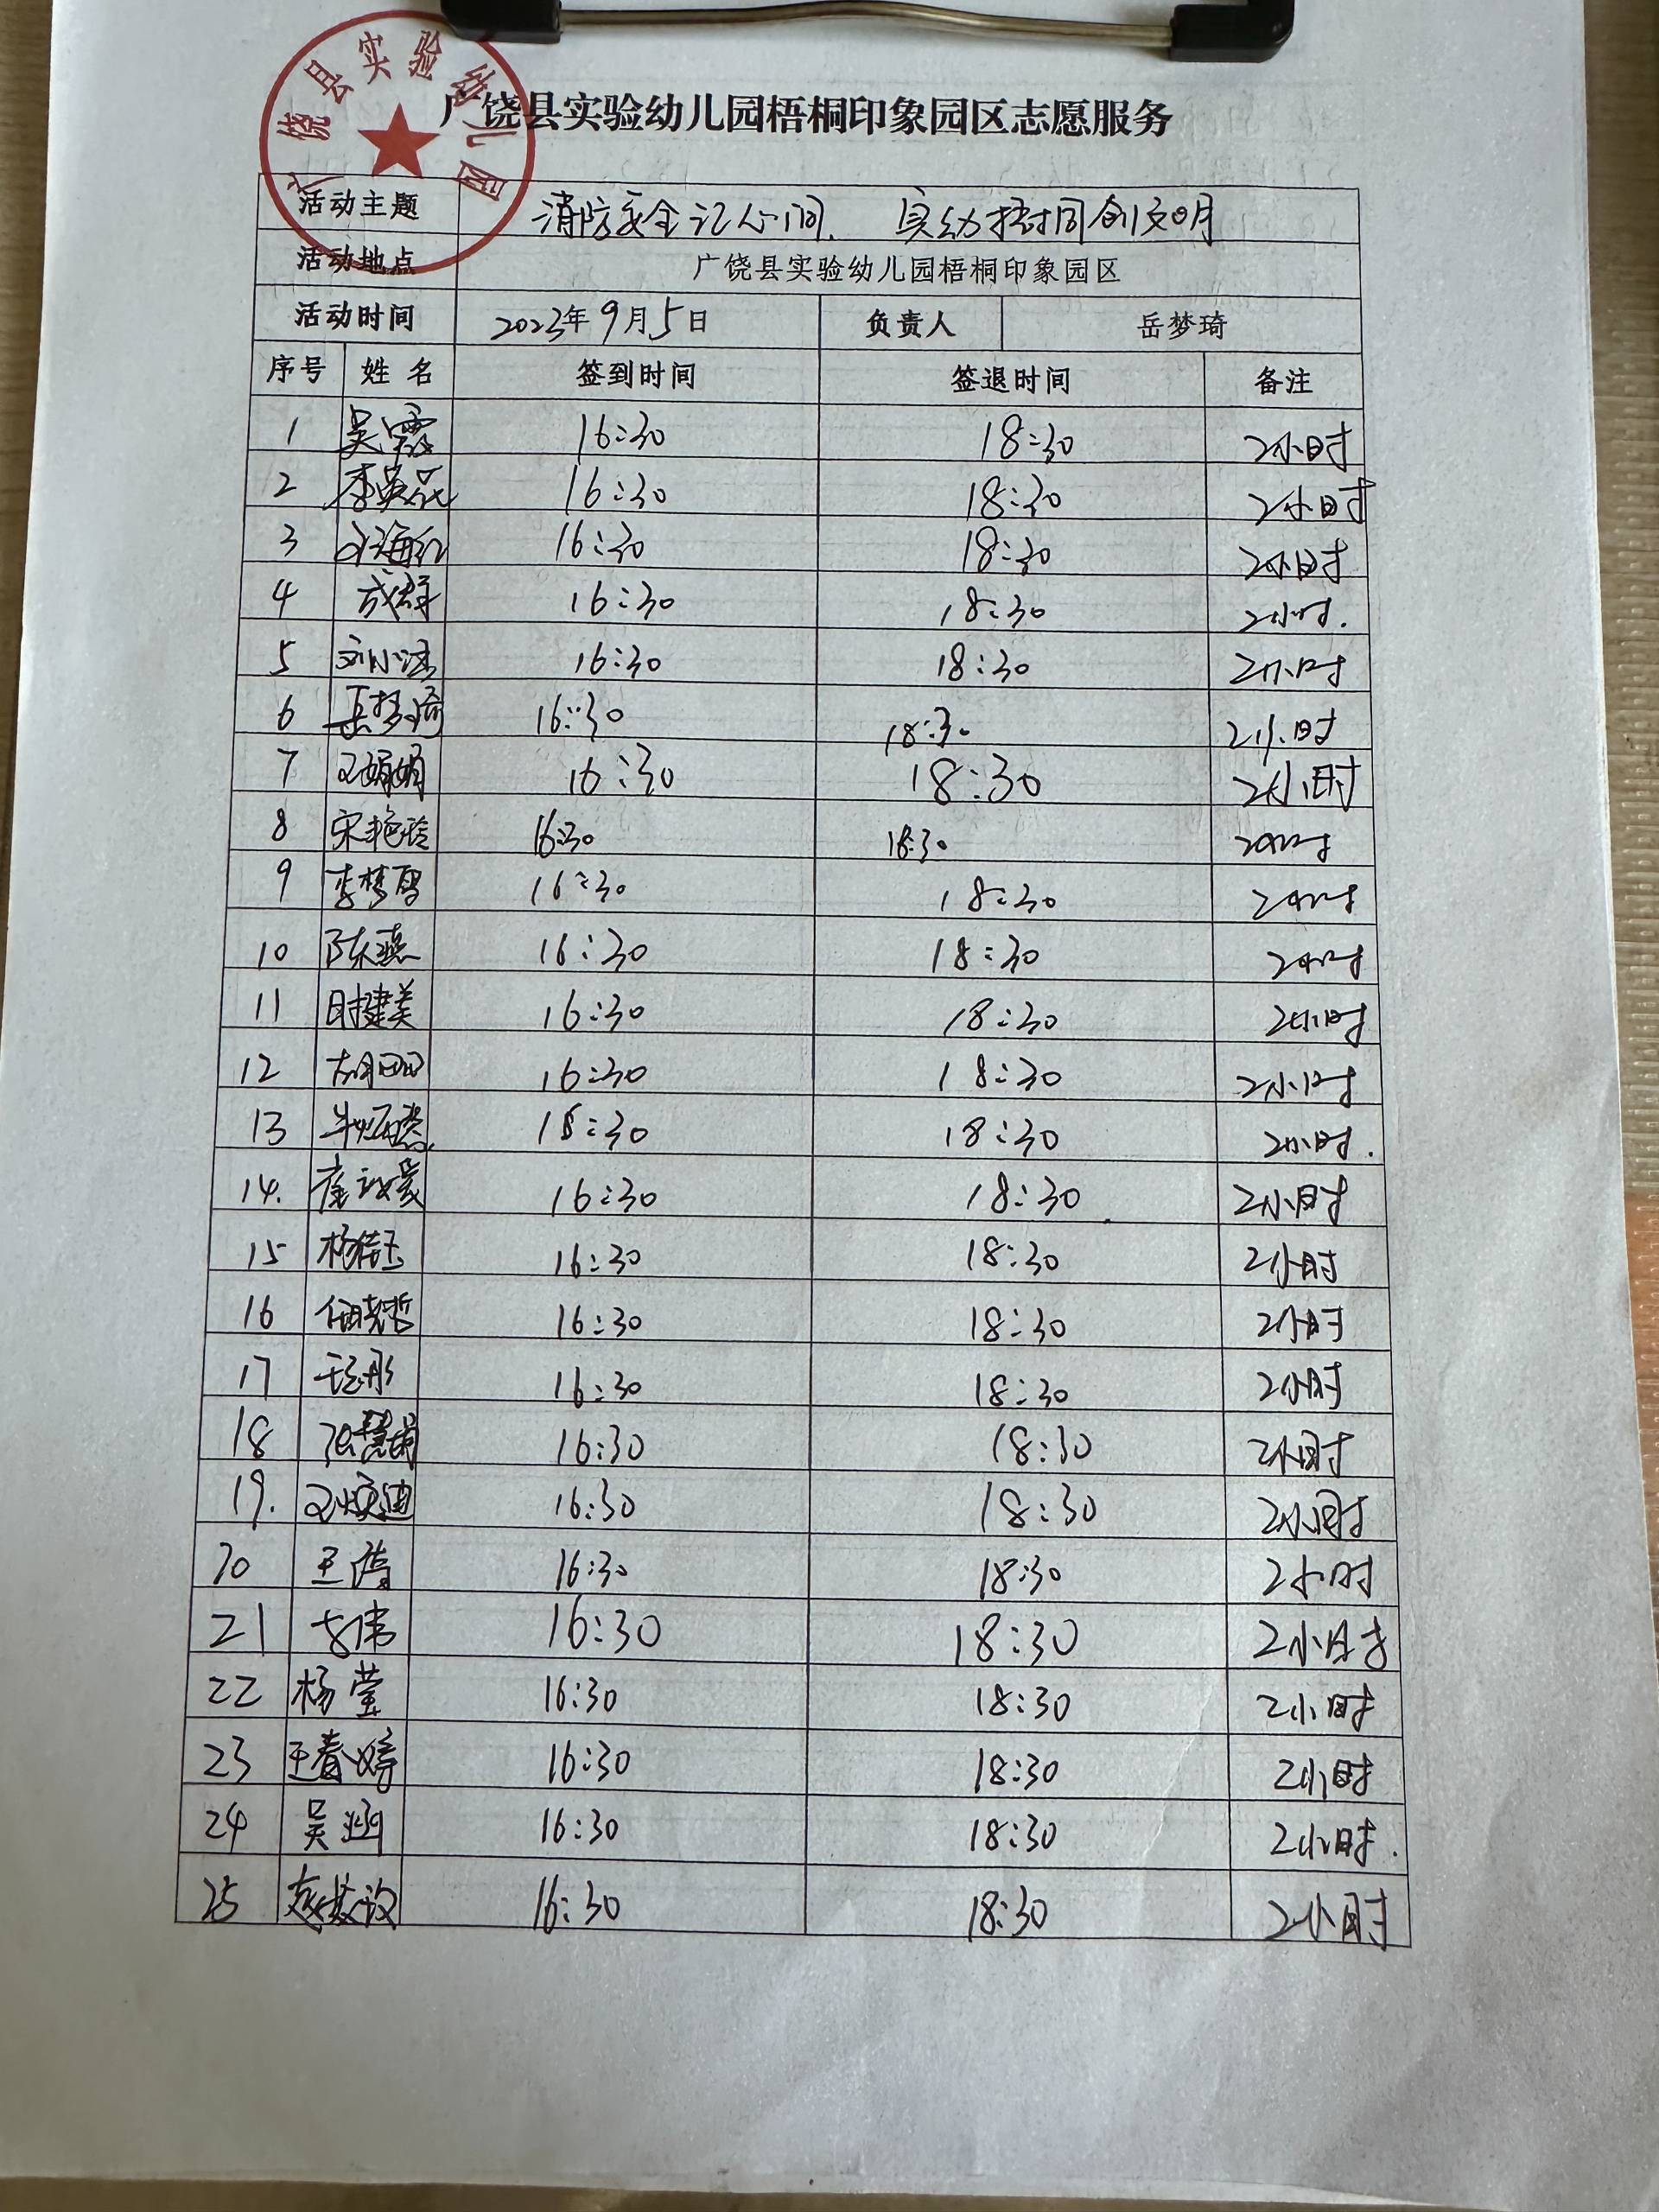 广饶县实验幼儿园
广饶县实验幼儿园梧桐印象园区志愿服务
活动主题 消防安全记心间、实幼梧桐创文明
活动地点 广饶县实验幼儿园梧桐印象园区
活动时间 2023年9月5日 负责人 岳梦琦
序号 姓名 签到时间 签退时间 备注
1 吴霞 16:30 18:30 2小时
2 16:30 18:30 2小时
3 16:30 18:30 2小时
4 成群 16:30 18:30 2小时.
5 刘小洁 16:30 18:30 2小时
6 岳梦琦 16:30 18:30 2小时
7 王娟娟 16:30 18:30 2小时
8 宋艳玲 16:30 18:30 2小时
9 李梦雪 16:30 18:30 2小时
10 陈燕 16:30 18:30 2小时
11 时建美 16:30 18:30 2小时
12 胡田田 16:30 18:30 2小时
13 16:30 18:30 2小时.
14. 16:30 18:30 2小时
15 杨倩玉 16:30 18:30 2小时
16 任晓哲 16:30 18:30 2小时
17 16:30 18:30 2小时
18 张慧娟 16:30 18:30 2小时
19. 16:30 18:30 2小时
20 王倩 16:30 18:30 2小时
21 16:30 18:30 2小时
22 杨莹 16:30 18:30 2小时
23 王春婷 16:30 18:30 2小时
24 吴涵 16:30 18:30 2小时.
25 16:30 18:30 2小时